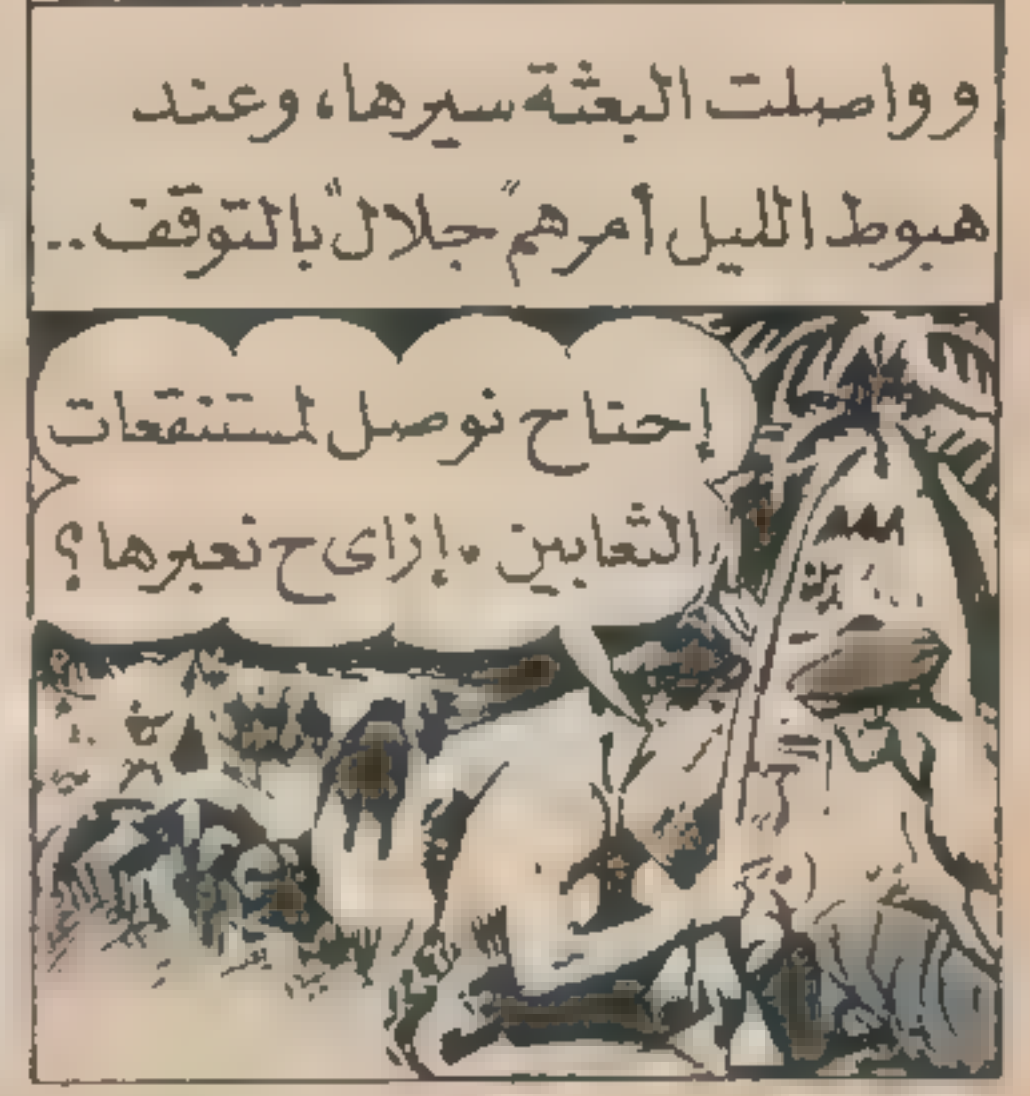 وواصلت البعثة سيرها، وعند
هبوط الليل أمرهم "جلال" بالتوقف..
إحتاح نوصل لمستنقعات
الثعابين. إزاى ح نعبرها؟